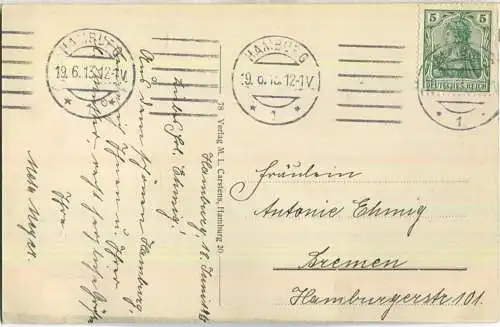 HAMBURG
19.6.13.12-1V.
* 1 *
HAMBURG
19.6.13.12-1V.
* 1 *
5 5
DEUTSCHES REICH
1 *
78 Verlag M. L. Carstens, Hamburg 20
Hamburg, 18. Juni
Liebe Frl. Ehmig!
Aus dem schönen Hamburg,
sendet Ihnen u. Ihrer
recht herzliche Grüße
Ihre
Meyer.
Fräulein
Antonie Ehmig
Bremen
Hamburgerstr 101.